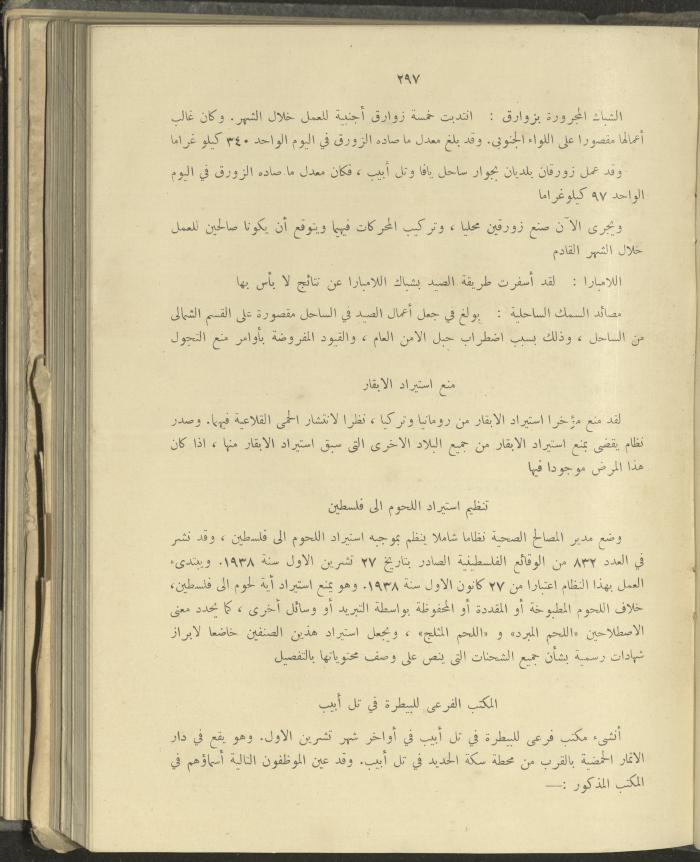 ٢٩٧
الشباك المجرورة بزوارق : انتدبت خمسة زوارق أجنبية للعمل خلال الشهر. وكان غالب
أعمالها مقصورا على اللواء الجنوبي. وقد بلغ معدل ما صاده الزورق في اليوم الواحد ٣٤٠ كيلو غراما
وقد عمل زورقان بلديان بجوار ساحل يافا وتل أبيب ، فكان معدل ما صاده الزورق في اليوم
الواحد ٩٧ كيلوغراما
ويجرى الآن صنع زورقين محليا ، وتركيب المحركات فيهما ويتوقع أن يكونا صالحين للعمل
خلال الشهر القادم
اللامبارا : لقد أسفرت طريقة الصيد بشباك اللامبارا عن نتائج لا بأس بها
مصائد السمك الساحلية : بولغ في جعل أعمال الصيد في الساحل مقصورة على القسم الشمالى
من الساحل ، وذلك بسبب اضطراب حبل الامن العام ، والقيود المفروضة بأوامر منع التجول
منع استيراد الابقار
لقد منع مؤخرا استيراد الابقار من رومانيا وتركيا ، نظرا لانتشار الحمى القلاعية فيهما. وصدر
نظام يقضى بمنع استيراد الابقار من جميع البلاد الاخرى التى سبق استيراد الابقار منها ، اذا كان
هذا المرض موجودا فيها
تنظيم استيراد اللحوم الى فلسطين
وضع مدير المصالح الصحية نظاما شاملا ينظم بموجبه استيراد اللحوم الى فلسطين ، وقد نشر
في العدد ٨٣٢ من الوقائع الفلسطينية الصادر بتاريخ ٢٧ تشرين الاول سنة ١٩٣٨. ويبتدىء
العمل بهذا النظام اعتبارا من ٢٧ كانون الاول سنة ١٩٣٨. وهو يمنع استيراد أية لحوم الى فلسطين،
خلاف اللحوم المطبوخة أو المقددة أو المحفوظة بواسطة التبريد أو وسائل أخرى ، كما يحدد معنى
الاصطلاحين «اللحم المبرد» و «اللحم المثلج» ، ويجعل استيراد هذين الصنفين خاضعا لابراز
شهادات رسمية بشأن جميع الشحنات التى ينص على وصف محتوياتها بالتفصيل
المكتب الفرعى للبيطرة في تل أبيب
أنشىء مكتب فرعى للبيطرة في تل أبيب في أواخر شهر تشرين الاول. وهو يقع في دار
الاثمار الحمضية بالقرب من محطة سكة الحديد في تل أبيب. وقد عين الموظفون التالية أسماؤهم في
المكتب المذكور :—